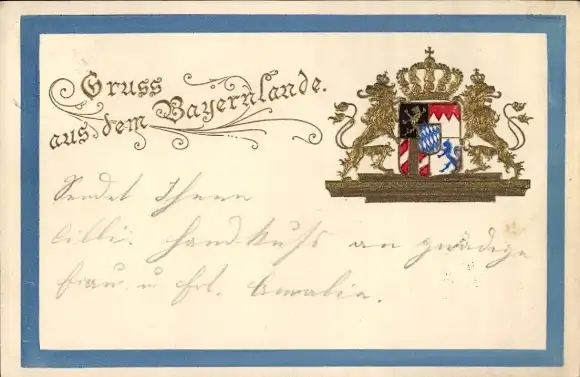 Gruss
aus dem Bayernlande.
Sendet Ihnen
Cilli. Handkuß an gnädige
Frau u Frl. Amalia.